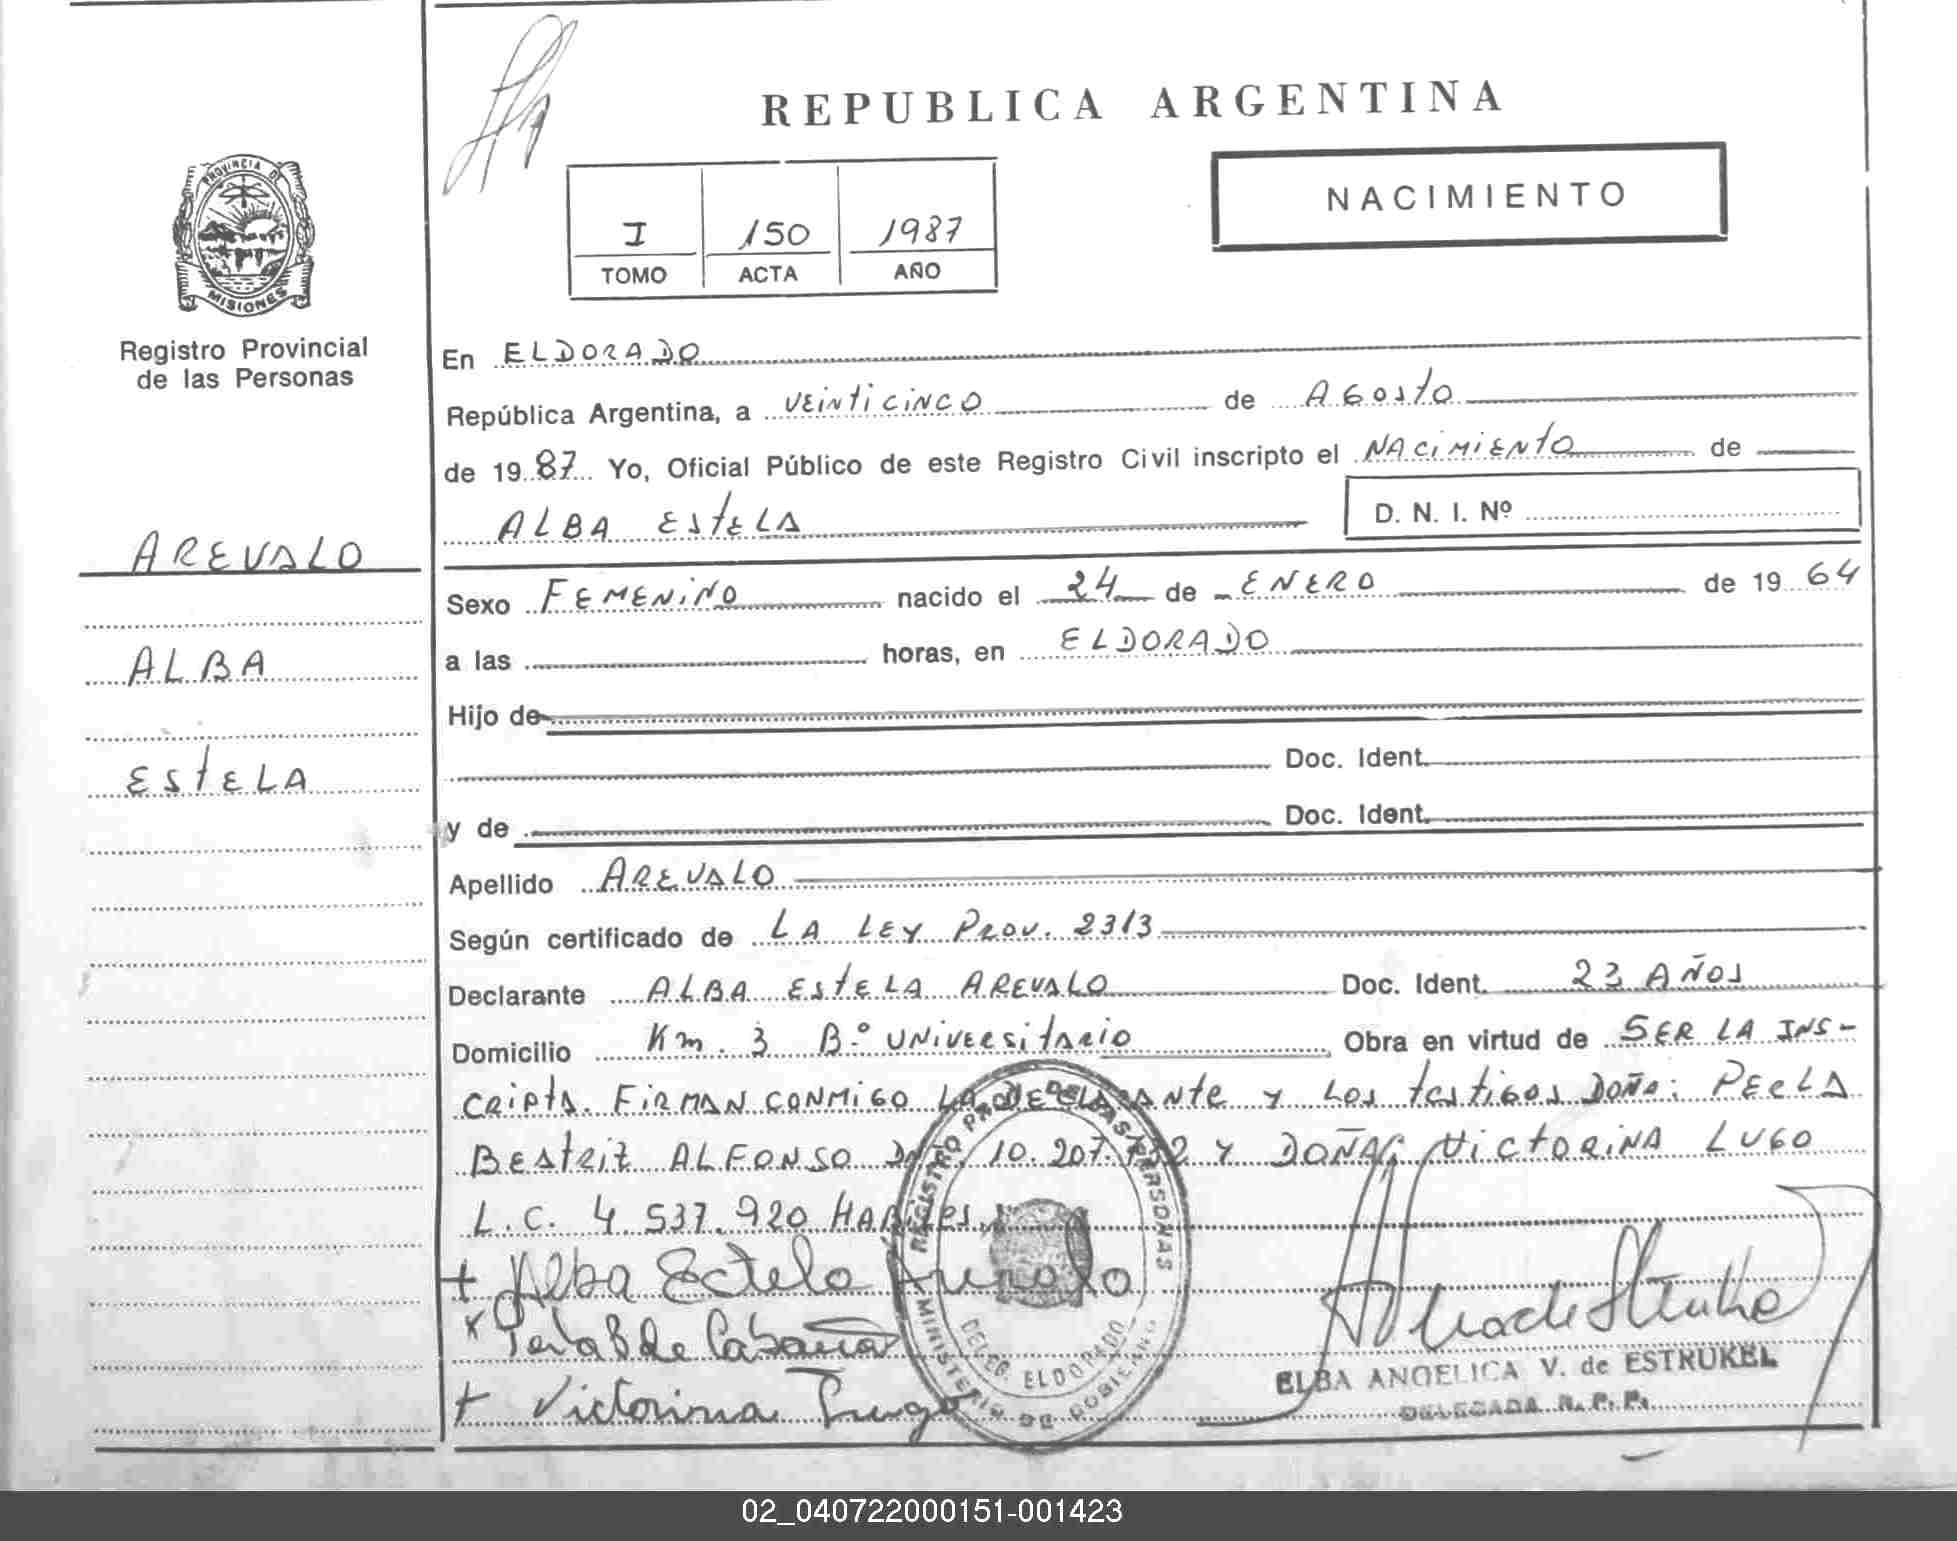 REPUBLICA ARGENTINA
PROVINCIA DE
MISIONES
Registro Provincial
de las Personas
AREVALO
ALBA
ESTELA
I 150 1987
TOMO ACTA AÑO
NACIMIENTO
En ELDORADO
República Argentina, a VEINTICINCO de AGOSTO
de 1987 Yo, Oficial Público de este Registro Civil inscripto el NACIMIENTO de
ALBA ESTELA D. N. I. Nº
Sexo FEMENINO nacido el 24 de ENERO de 1964
a las horas, en ELDORADO
Hijo de
Doc. Ident.
y de Doc. Ident.
Apellido AREVALO
Según certificado de LA LEY PROV. 2313
Declarante ALBA ESTELA AREVALO Doc. Ident. 23 AÑOS
Domicilio Km. 3 Bº UNIVERSITARIO, Obra en virtud de SER LA INS-
CRIPTA. FIRMAN CONMIGO LA DECLARANTE Y LOS TESTIGOS DOÑA: PERLA
BEATRIZ ALFONSO 10.207.732 Y DOÑA: VICTORINA LUGO
L.C. 4.537.920 HABILES.
+ Alba Estela Arevalo
x Perla B de
+ Victorina Lugo
REGISTRO PROV. DE LAS PERSONAS
DELEG. ELDORADO
MINISTERIO DE GOBIERNO
ELBA ANGELICA V. de ESTRUKEL
DELEGADA R. P. P.
02_040722000151-001423